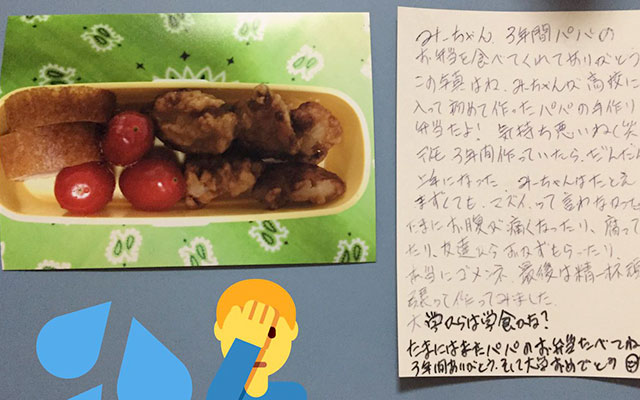 みーちゃん、3年間パパの
お弁当を食べてくれてありがとう
この写真はね、みーちゃんが高校に
入って初めて作ったパパの手作り
弁当だよ! 気持ち悪いね(笑
でも3年間作っていたら、だんだん
上手になった。みーちゃんはたとえ
まずくても、マズイって言わなかった
たまにお腹が痛くなったり、腐って
たり、友達からおかずもらったり
本当にゴメンネ。最後は精一杯頑
張って作ってみました。
大学からは学食かな?
たまにはまたパパのお弁当たべてね
3年間ありがとう。そして大学おめでとう